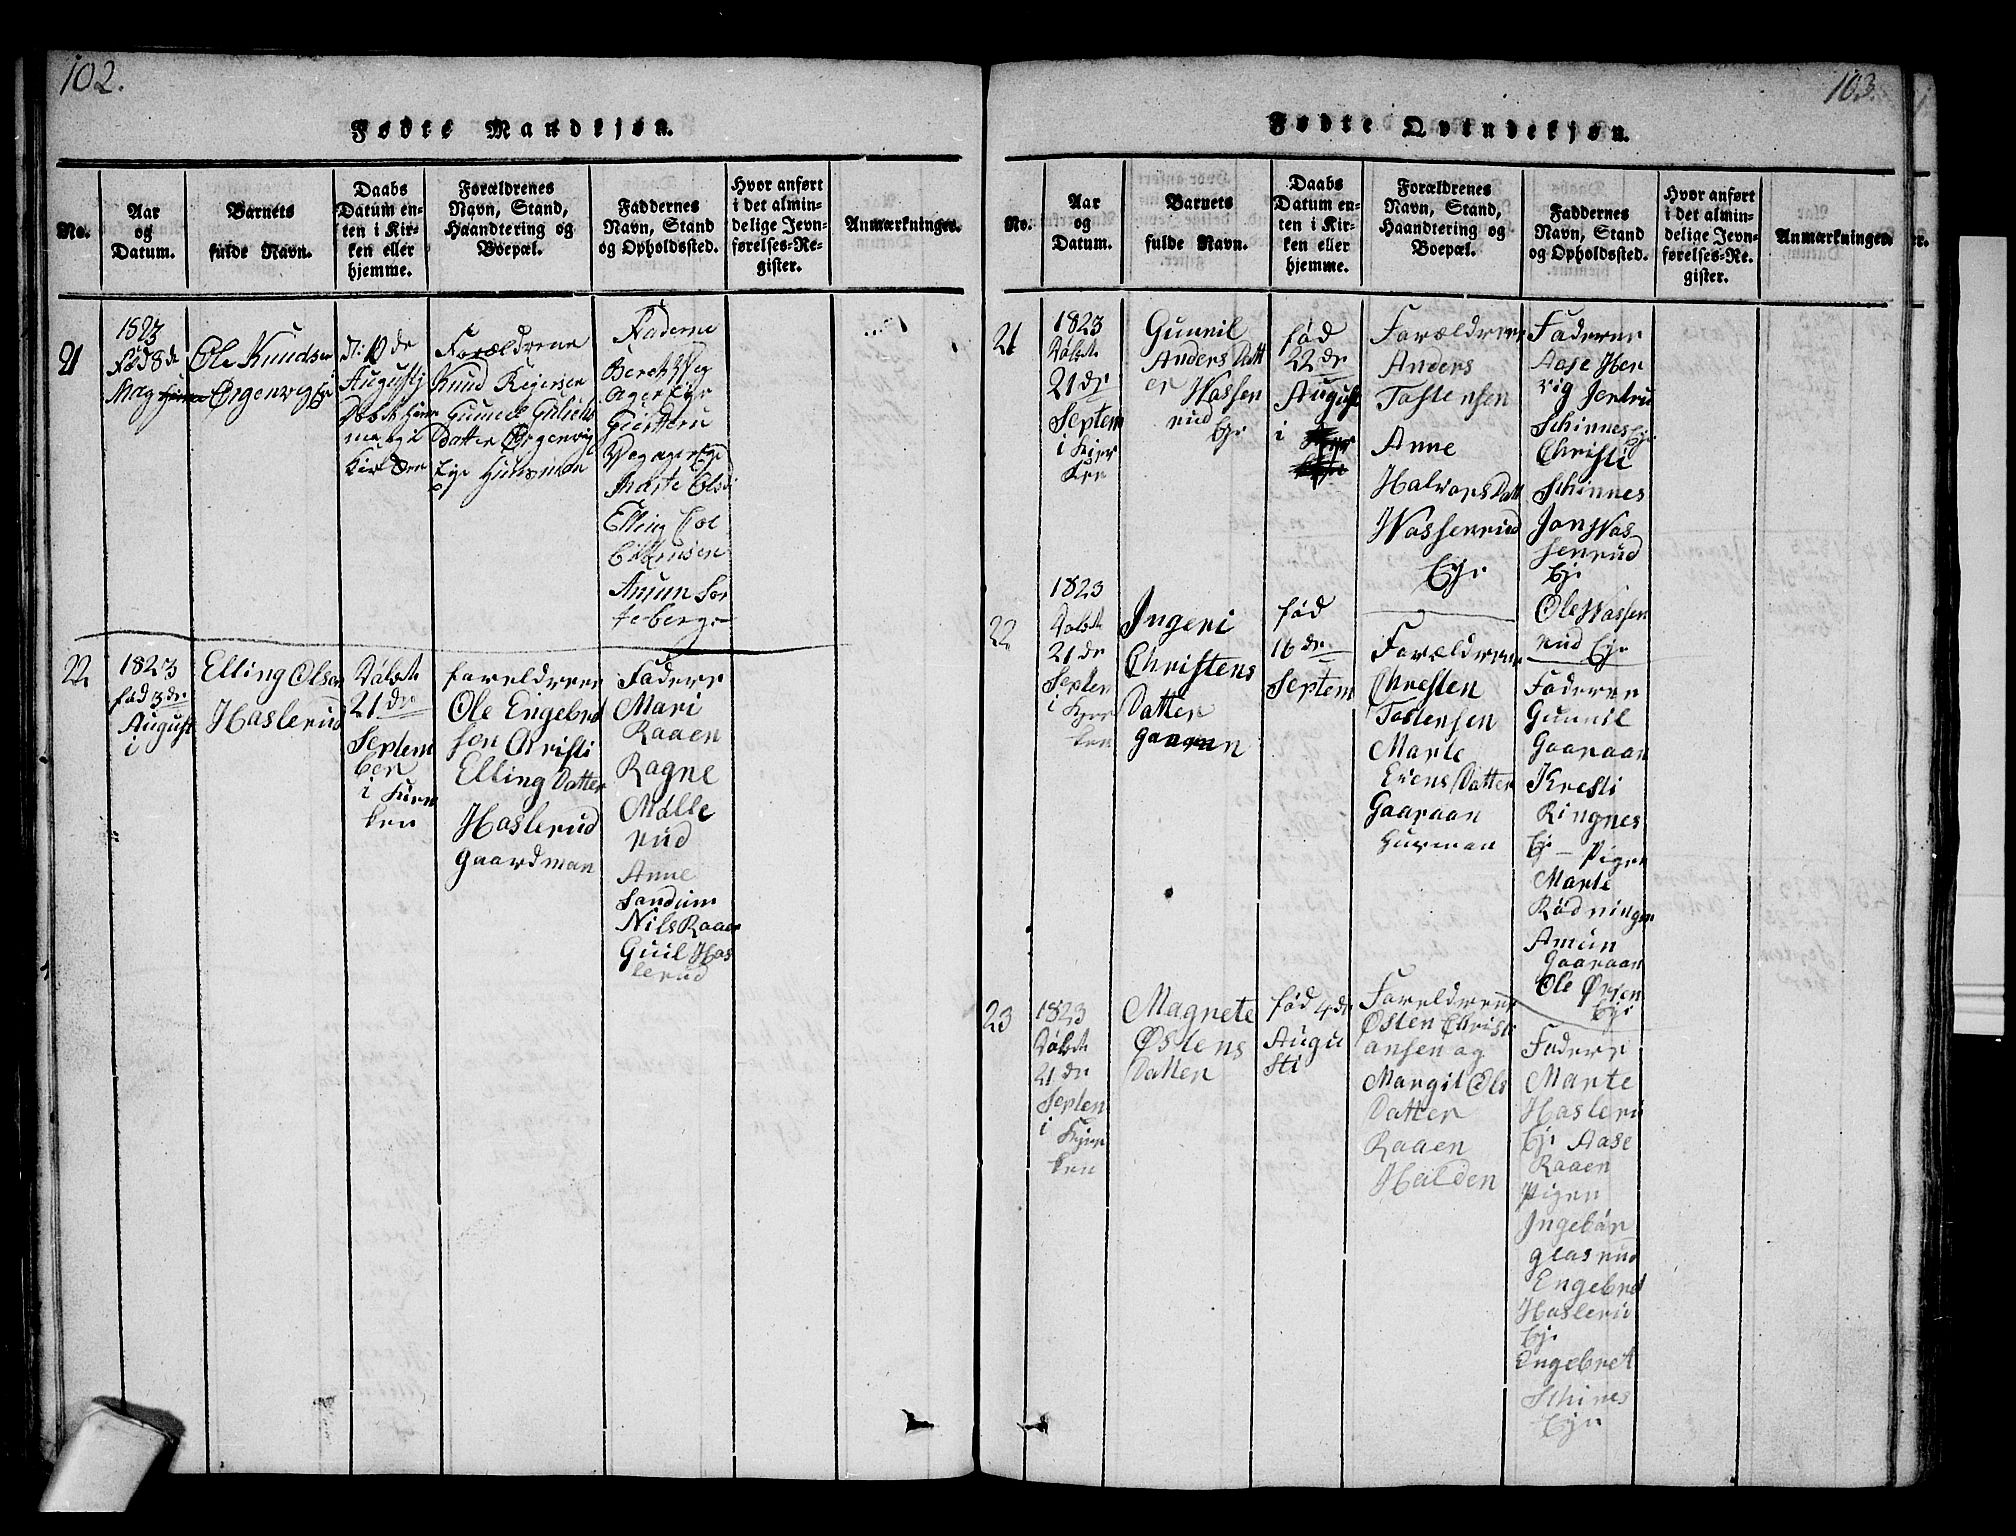 102.
Fødte Mandkjøn.
No.
Aar
og
Datum.
Barnets
fulde Navn.
Daabs
Datum en-
ten i Kir-
ken eller
hjemme.
Forældrenes
Navn, Stand,
Haandtering og
Boepæl.
Faddernes
Navn, Stand
og Opholdssted.
Hvor anført
i det almin-
delige Jevn-
førelses-Re-
gister.
Anmærkninger.
21
1823
fød 8de
May
Ole Knudsen
Ørgenvig Eje
D: 10de
Augustj
Døbt hjem
me
Kirken
Forældrene
Knud Rejersen
Gunnel
Datter Ørgenvig
Eje Husman
Faderne
Beret Veg
ager Eje
Veg ager Eje
Marte Olsd
Elling
Amun Sor
teberg
22
1823
fød 3de
August
i
Elling Olsen
Haslerud
Døbt
21de
Septem
ber
i Kirr
ken
foreldrene
Ole Engebret
sen Christi
Elling Datter
Haslerud
Gaardman
Fadere
Mari
Raaen
Ragne
Mølle
rud
Anne
Sandum
Nils Raaen
Guil Has
lerud
103.
Fødte Qvindekjøn.
No.
Aar
og
Datum.
Barnets
fulde Navn.
Daabs
Datum en-
ten i Kir-
ken eller
hjemme.
Forældrenes
Navn, Stand,
Haandtering og
Boepæl.
Faddernes
Navn, Stand
og Opholdssted.
Hvor anført
i det almin-
delige Jevn-
førelses-Re-
gister.
Anmærkninger.
21
1823
Døbt
21de
Septem
i Kirr
ken
Gunnil
Anders Datt
er Wassen
rud
Eje
fød
22de
August
i
Forældrene
Anders
Tostensen
Anne
Halvors Datt
Wassenrud
Eje
Faderer
Aase Her
vig Jertru
Schinnes Eje
Christi
Schinnes
Jon Was
senrud
Eje
Ole Wassen
rud Eje
22
1823
Døbt
21de
Septem
i Kirr
ken
Ingeri
Christens
Datter
Gaaraan
fød
16de
Septem
Forældrene
Christen
Tostensen
Marte
Eriens Datter
Gaaraan
Husman
Faderer
Gunnil
Gaaraan
Kresti
Ringnes
Eje - Pigen
Marte
Rødningen
Amun
Gaaraan
Ole Ørgen
Eje
23
1823
Døbt
21de
Septem
i Kjir
ken
Magnete
Østens
Datter
fød 4de
Augu
sti
Foreldrene
Østen Christi
ansen og
Margit Ols
Datter
Raaen
Halden
Fadere
Marte
Hasleru
Eje Aase
Raaen
Pigen
Ingebør
glasrud
Engebret
Hasleru
Eje
Engebret
Schines
Eje